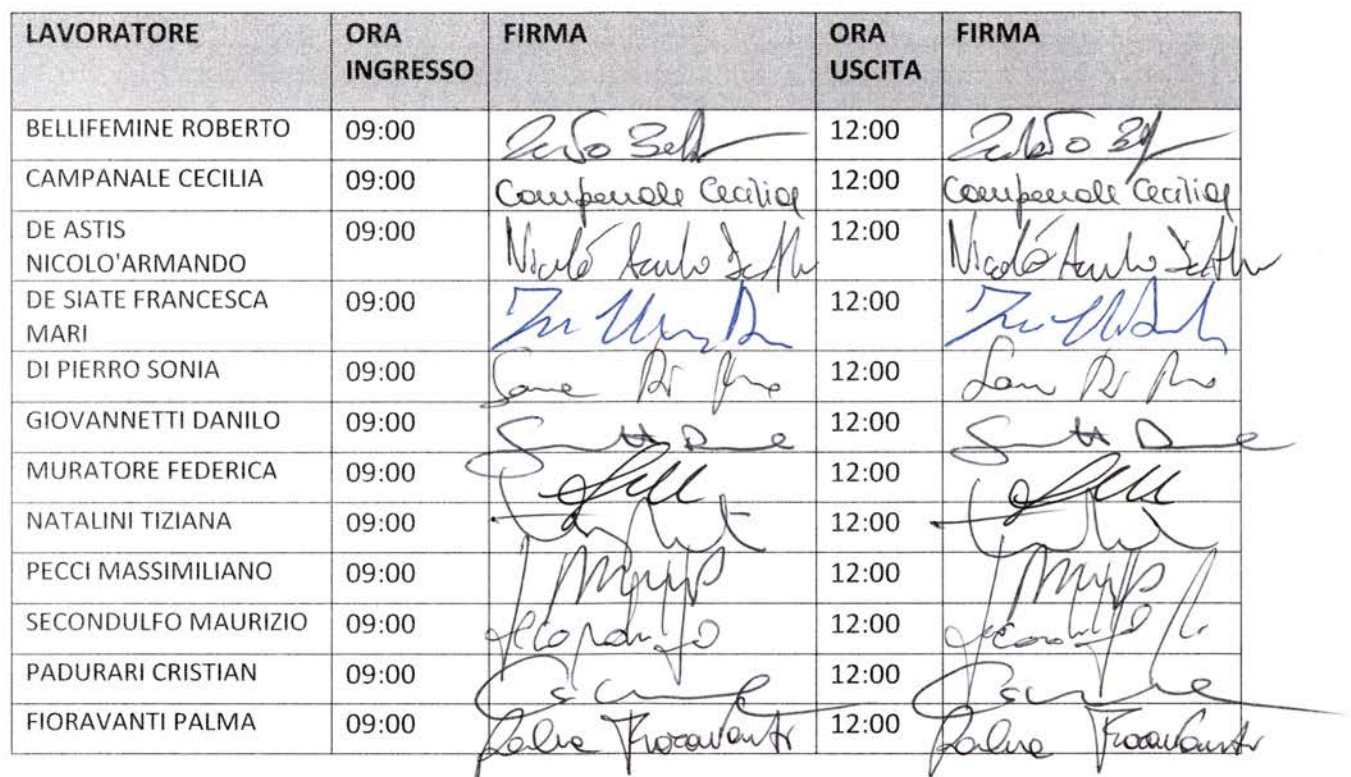 LAVORATORE ORA INGRESSO FIRMA ORA USCITA FIRMA
BELLIFEMINE ROBERTO 09:00 12:00
CAMPANALE CECILIA 09:00 Campanale Cecilia 12:00 Campanale Cecilia
DE ASTIS NICOLO'ARMANDO 09:00 Nicolò 12:00 Nicolò
DE SIATE FRANCESCA MARI 09:00 12:00
DI PIERRO SONIA 09:00 12:00
GIOVANNETTI DANILO 09:00 12:00
MURATORE FEDERICA 09:00 12:00
NATALINI TIZIANA 09:00 12:00
PECCI MASSIMILIANO 09:00 12:00
SECONDULFO MAURIZIO 09:00 12:00
PADURARI CRISTIAN 09:00 12:00
FIORAVANTI PALMA 09:00 Palma Fioravanti 12:00 Palma Fioravanti